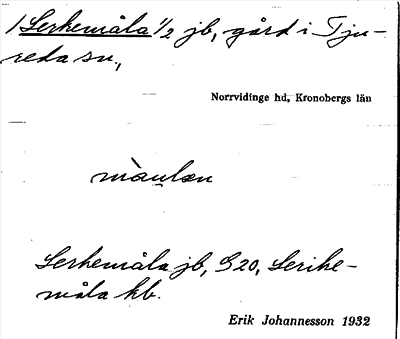 /Lerkemåla 1/2 jb, gård i Tju-
reda sn.,
Norrvidinge hd, Kronobergs län
màulən
Lerkemåla jb, G20, Lerike-
måla kb.
Erik Johannesson 1932